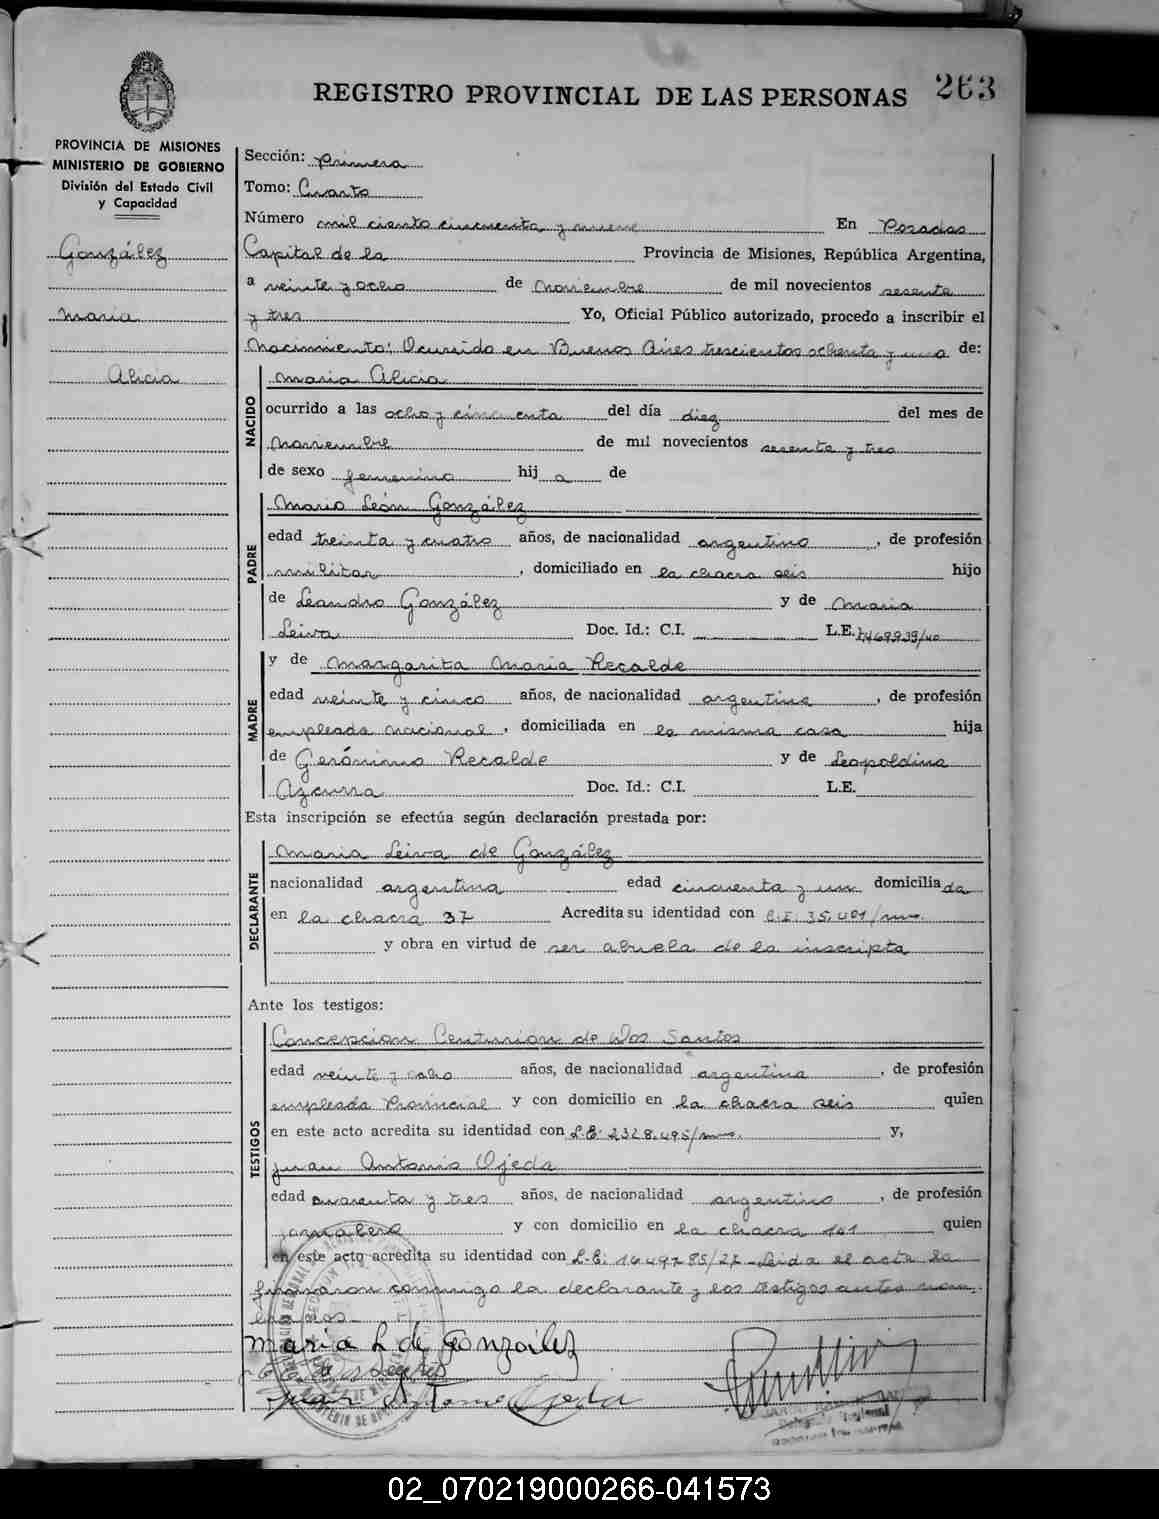 263
REGISTRO PROVINCIAL DE LAS PERSONAS
PROVINCIA DE MISIONES
MINISTERIO DE GOBIERNO
División del Estado Civil
y Capacidad
González
Maria
Alicia
Sección: Primera
Tomo: Cuarto
Número mil ciento cincuenta y nueve En Posadas
Capital de la Provincia de Misiones, República Argentina,
a veinte y ocho de Noviembre de mil novecientos sesenta
y tres Yo, Oficial Público autorizado, procedo a inscribir el
Nacimiento: Ocurrido en Buenos Aires trescientos ochenta y uno de:
NACIDO
Maria Alicia
ocurrido a las ocho y cincuenta del día diez del mes de
Noviembre de mil novecientos sesenta y tres
de sexo femenino hij a de
PADRE
Mario León González
edad treinta y cuatro años, de nacionalidad argentino, de profesión
militar, domiciliado en la chacra seis hijo
de Leandro González y de Maria
Leiva Doc. Id.: C.I. L.E.
MADRE
y de Margarita Maria Recalde
edad veinte y cinco años, de nacionalidad argentina, de profesión
empleada nacional, domiciliada en la misma casa hija
de Gerónimo Recalde y de Leopoldina
Azcurra Doc. Id.: C.I. L.E.
Esta inscripción se efectúa según declaración prestada por:
DECLARANTE
Maria Leiva de González
nacionalidad argentina edad cincuenta y un domiciliada
en la chacra 37 Acredita su identidad con C.I: 35.401/mns.
y obra en virtud de ser abuela de la inscripta
Ante los testigos:
TESTIGOS
Concepcion Centurion de Dos Santos
edad veinte y ocho años, de nacionalidad argentina, de profesión
empleada Provincial y con domicilio en la chacra seis quien
en este acto acredita su identidad con L.E: 2328.495/mns. y,
Juan Antonio Ojeda
edad cuarenta y tres años, de nacionalidad argentino, de profesión
jornalero y con domicilio en la chacra 101 quien
en este acto acredita su identidad con L.E: Leida el acta la
firmaron conmigo la declarante y los testigos antes nom-
brados.
Maria L de Gonzalez
Juan Antonio Ojeda
02_070219000266-041573